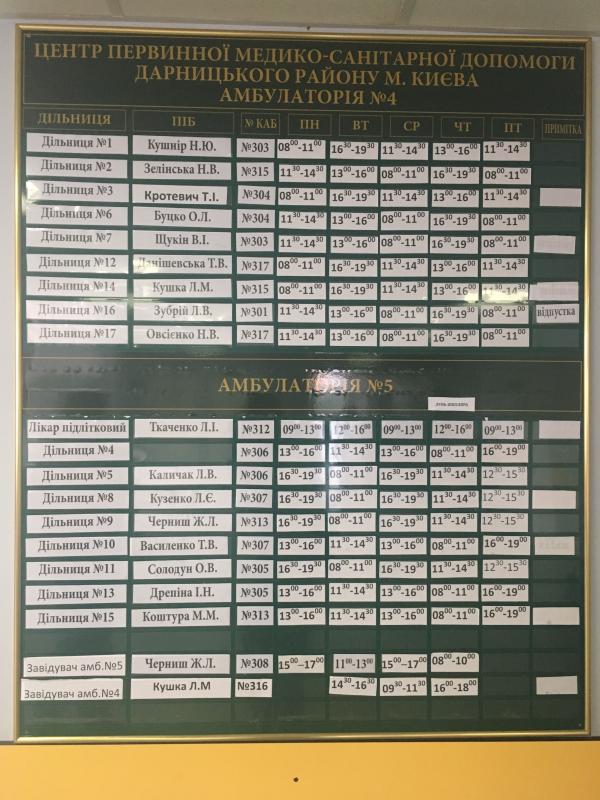 ЦЕНТР ПЕРВИННОЇ МЕДИКО-САНІТАРНОЇ ДОПОМОГИ
ДАРНИЦЬКОГО РАЙОНУ М. КИЄВА
АМБУЛАТОРІЯ №4
ДІЛЬНИЦЯ ПІБ № КАБ ПН ВТ СР ЧТ ПТ ПРИМІТКА
Дільниця №1 Кушнір Н.Ю. №303 08⁰⁰-11⁰⁰ 16³⁰-19³⁰ 11³⁰-14³⁰ 13⁰⁰-16⁰⁰ 11³⁰-14³⁰
Дільниця №2 Зелінська Н.В. №315 11³⁰-14³⁰ 13⁰⁰-16⁰⁰ 08⁰⁰-11⁰⁰ 16³⁰-19³⁰ 08⁰⁰-11⁰⁰
Дільниця №3 Кротевич Т.І. №304 08⁰⁰-11⁰⁰ 16³⁰-19³⁰ 11³⁰-14³⁰ 13⁰⁰-16⁰⁰ 11³⁰-14³⁰
Дільниця №6 Буцко О.Л. №304 11³⁰-14³⁰ 13⁰⁰-16⁰⁰ 08⁰⁰-11⁰⁰ 16³⁰-19³⁰ 08⁰⁰-11⁰⁰
Дільниця №7 Щукін В.І. №303 11³⁰-14³⁰ 13⁰⁰-16⁰⁰ 08⁰⁰-11⁰⁰ 16³⁰-19³⁰ 08⁰⁰-11⁰⁰
Дільниця №12 Данішевська Т.В. №317 08⁰⁰-11⁰⁰ 16³⁰-19³⁰ 11³⁰-14³⁰ 13⁰⁰-16⁰⁰ 11³⁰-14³⁰
Дільниця №14 Кушка Л.М. №315 08⁰⁰-11⁰⁰ 16³⁰-19³⁰ 11³⁰-14³⁰ 13⁰⁰-16⁰⁰ 11³⁰-14³⁰
Дільниця №16 Зубрій Л.В. №301 11³⁰-14³⁰ 13⁰⁰-16⁰⁰ 08⁰⁰-11⁰⁰ 16³⁰-19³⁰ 08⁰⁰-11⁰⁰ відпустка
Дільниця №17 Овсієнко Н.В. №317 11³⁰-14³⁰ 13⁰⁰-16⁰⁰ 08⁰⁰-11⁰⁰ 16³⁰-19³⁰ 08⁰⁰-11⁰⁰
АМБУЛАТОРІЯ №5
Лікар підлітковий Ткаченко Л.І. №312 09⁰⁰-13⁰⁰ 12⁰⁰-16⁰⁰ 09⁰⁰-13⁰⁰ 12⁰⁰-16⁰⁰ 09⁰⁰-13⁰⁰
Дільниця №4 №306 13⁰⁰-16⁰⁰ 11³⁰-14³⁰ 13⁰⁰-16⁰⁰ 08⁰⁰-11⁰⁰ 16⁰⁰-19⁰⁰
Дільниця №5 Каличак Л.В. №306 16³⁰-19³⁰ 08⁰⁰-11⁰⁰ 16³⁰-19³⁰ 11³⁰-14³⁰ 12³⁰-15³⁰
Дільниця №8 Кузенко Л.Є. №307 16³⁰-19³⁰ 08⁰⁰-11⁰⁰ 16³⁰-19³⁰ 11³⁰-14³⁰ 12³⁰-15³⁰
Дільниця №9 Черниш Ж.Л. №313 16³⁰-19³⁰ 08⁰⁰-11⁰⁰ 16³⁰-19³⁰ 11³⁰-14³⁰ 12³⁰-15³⁰
Дільниця №10 Василенко Т.В. №307 13⁰⁰-16⁰⁰ 11³⁰-14³⁰ 13⁰⁰-16⁰⁰ 08⁰⁰-11⁰⁰ 16⁰⁰-19⁰⁰
Дільниця №11 Солодун О.В. №305 16³⁰-19³⁰ 08⁰⁰-11⁰⁰ 16³⁰-19³⁰ 11³⁰-14³⁰ 12³⁰-15³⁰
Дільниця №13 Дрепіна І.Н. №305 13⁰⁰-16⁰⁰ 11³⁰-14³⁰ 13⁰⁰-16⁰⁰ 08⁰⁰-11⁰⁰ 16⁰⁰-19⁰⁰
Дільниця №15 Коштура М.М. №313 13⁰⁰-16⁰⁰ 11³⁰-14³⁰ 13⁰⁰-16⁰⁰ 08⁰⁰-11⁰⁰ 16⁰⁰-19⁰⁰
Завідувач амб.№5 Черниш Ж.Л. №308 15⁰⁰–17⁰⁰ 11⁰⁰-13⁰⁰ 15⁰⁰–17⁰⁰ 08⁰⁰-10⁰⁰
Завідувач амб.№4 Кушка Л.М №316 14³⁰-16³⁰ 09³⁰-11³⁰ 16⁰⁰-18⁰⁰